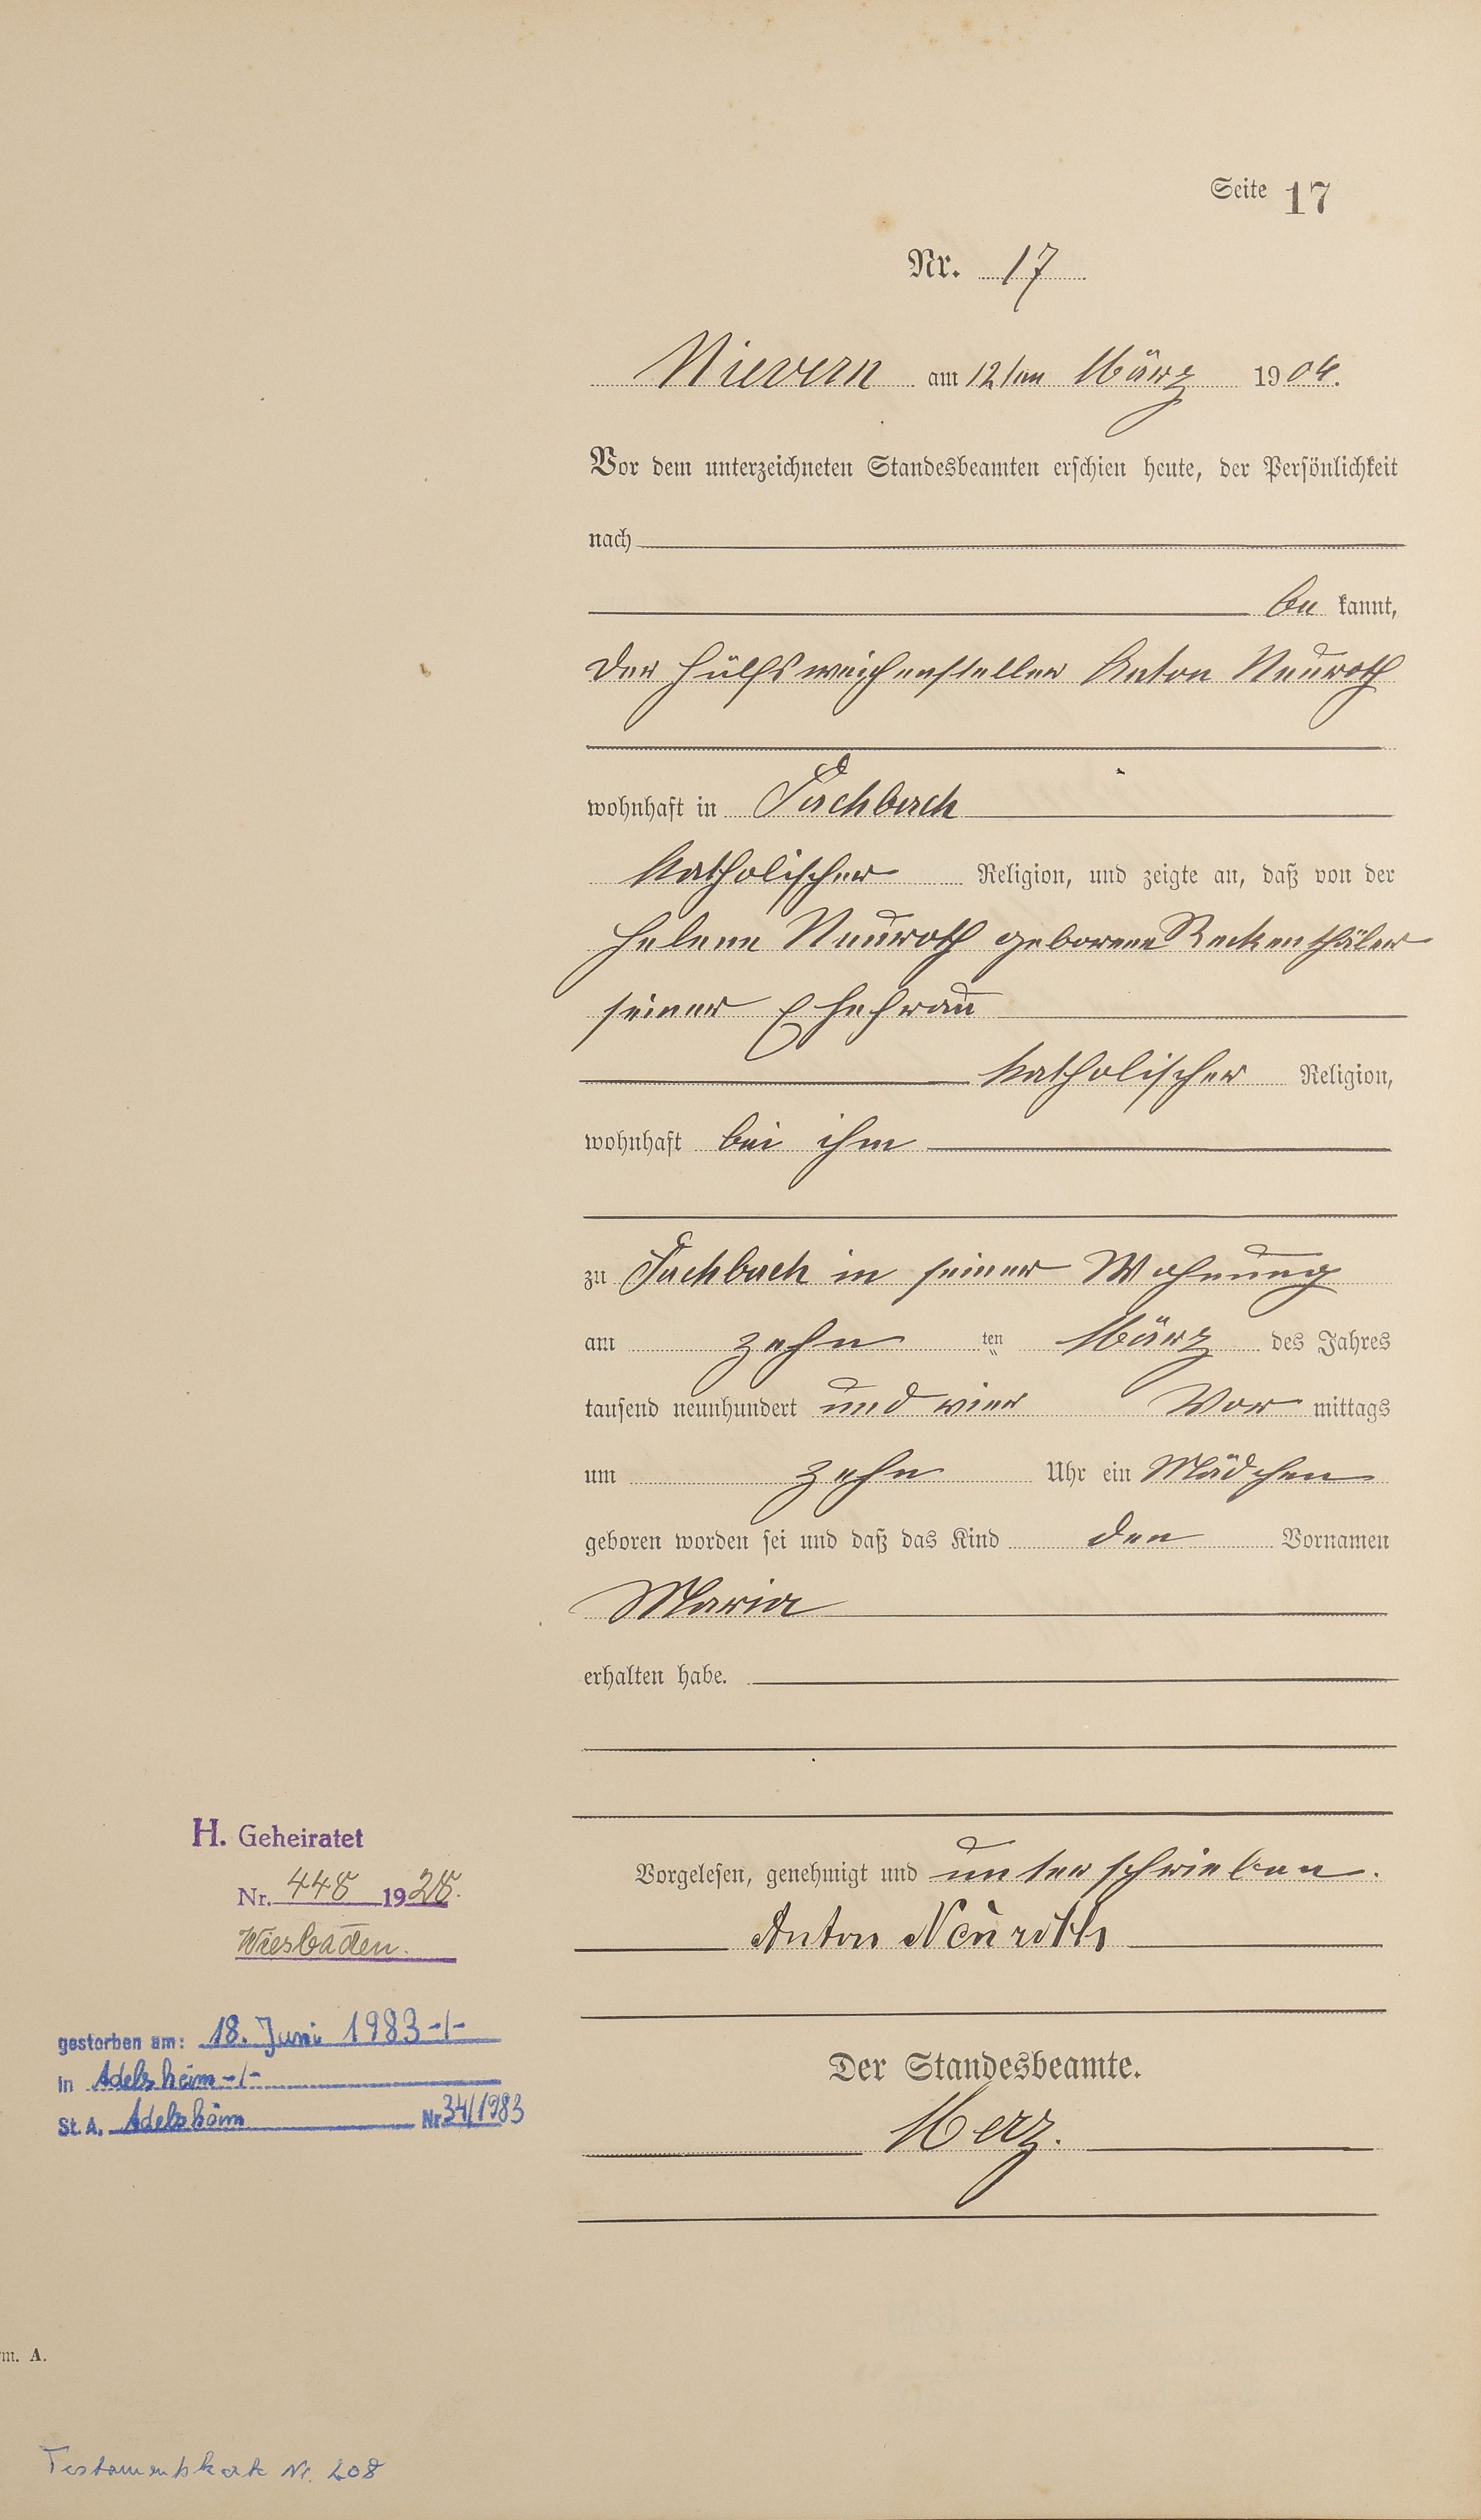 Seite 17
Nr. 17
Nievern am 12ten März 1904.
Vor dem unterzeichneten Standesbeamten erschien heute, der Persönlichkeit
nach
be kannt,
der Hülfsweichensteller Anton Neuroth
wohnhaft in Fachbach
katholischer Religion, und zeigte an, daß von der
Helene Neuroth geborene Reckenthäler
seiner Ehefrau
katholischer Religion,
wohnhaft bei ihm
zu Fachbach in seiner Wohnung
am zehn ten März des Jahres
tausend neunhundert und vier Vor mittags
um zehn Uhr ein Mädchen
geboren worden sei und daß das Kind den Vornamen
Maria
erhalten habe.
Vorgelesen, genehmigt und unterschrieben.
Anton Neuroth
Der Standesbeamte.
Merz.
H. Geheiratet
Nr. 448 1928.
Wiesbaden.
gestorben am: 18. Juni 1983 -/-
in Adelsheim -/-
St. A. Adelsheim Nr 34/1983
m. A.
Testamentskarte Nr. 208